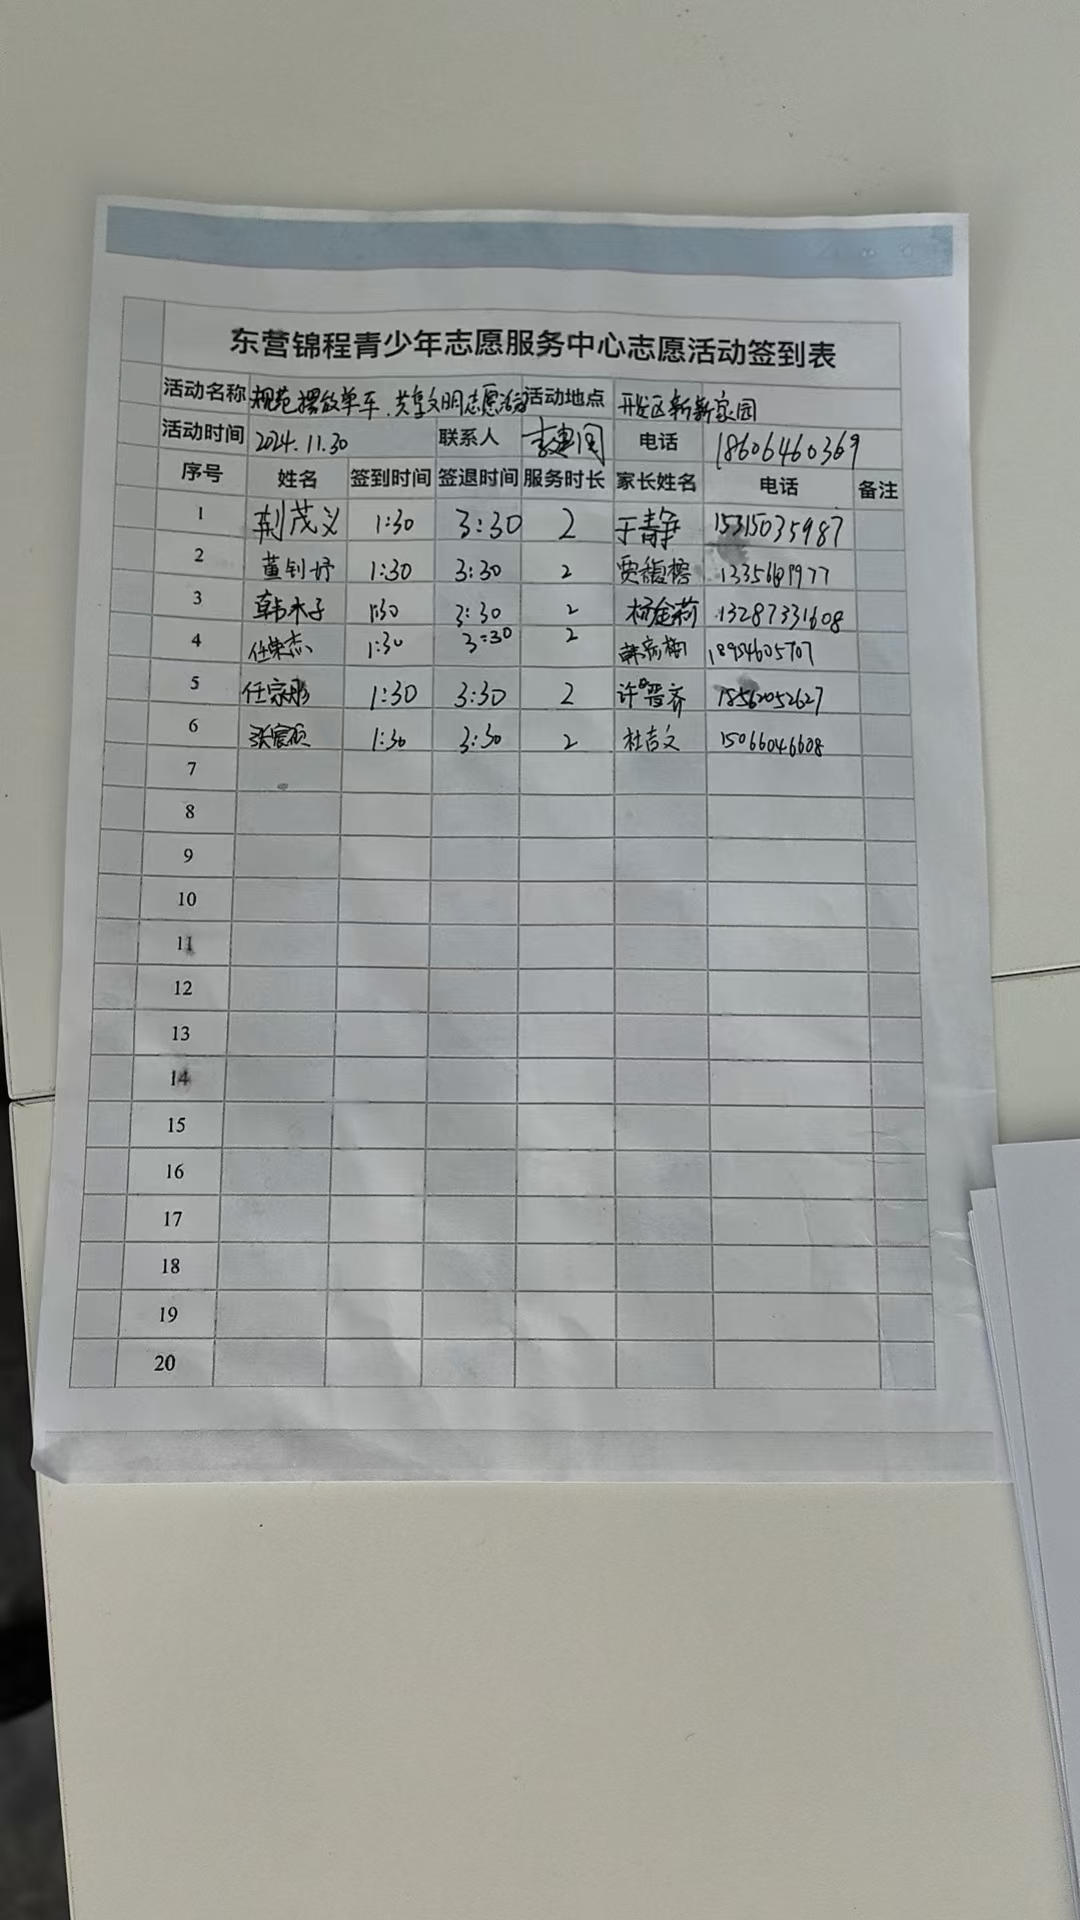 东营锦程青少年志愿服务中心志愿活动签到表
活动名称 规范摆放单车、共享文明志愿活动 活动地点 开发区新新家园
活动时间 2024.11.30 联系人 电话 18606460369
序号 姓名 签到时间 签退时间 服务时长 家长姓名 电话 备注
1 荆茂义 1:30 3:30 2 于静 15315035987
2 董钊妤 1:30 3:30 2 贾
3 韩木子 1:30 3:30 2 杨金莉 13287331608
4 任荣杰 1:30 3:30 2 韩 梅 18954605707
5 任宗彤 1:30 3:30 2 许 齐 18562052627
6 张宸硕 1:30 3:30 2 杜吉文 15066046608
7
8
9
10
11
12
13
14
15
16
17
18
19
20